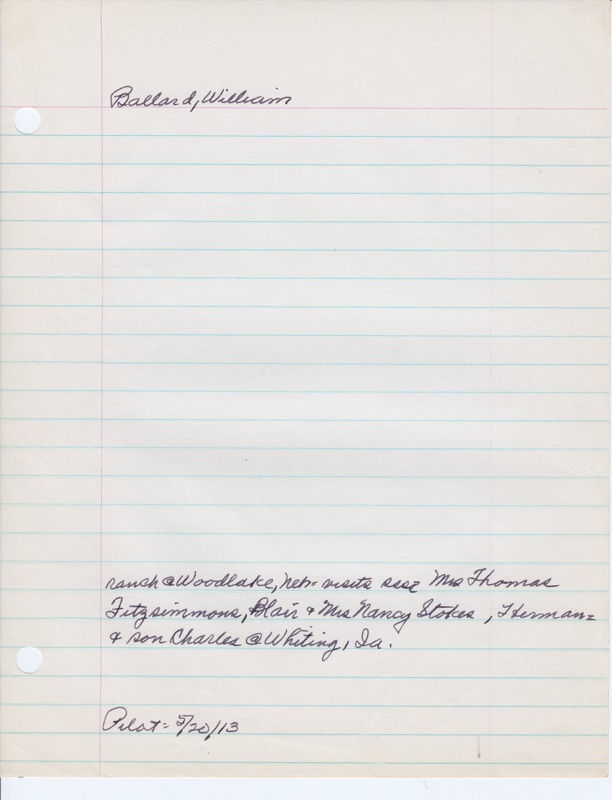 Ballard, William
ranch @ Woodlake, Neb- visits Mrs Thomas
Fitzsimmons, Blair & Mrs Nancy Stokes, Herman=
& son Charles @ Whiting, Ia.
Pilot= 5/20/13